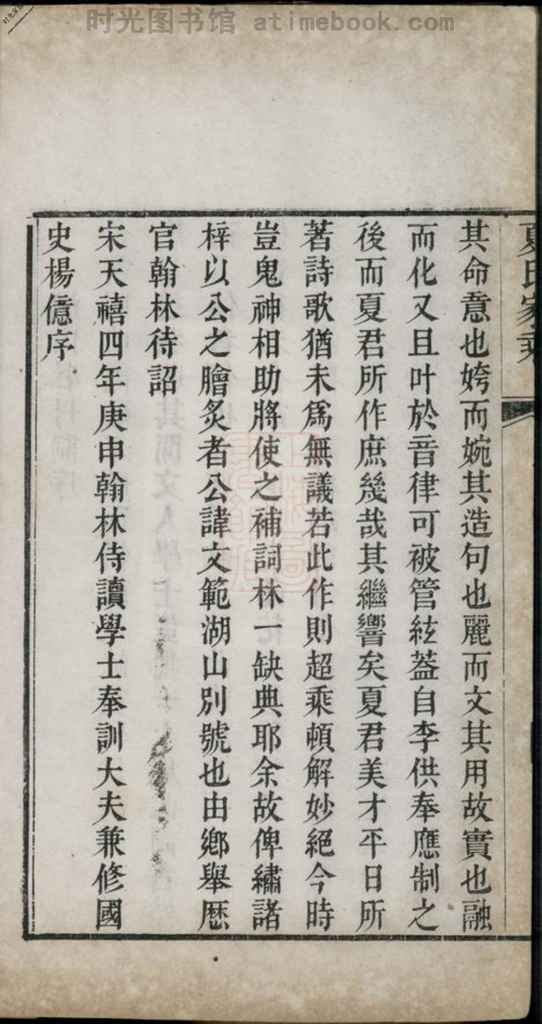 时光图书馆 atimebook.com
夏氏家乘
其命意也姱而婉其造句也麗而文其用故實也融
而化又且叶於音律可被管絃蓋自李供奉應制之
後而夏君所作庶幾哉其繼響矣夏君美才平日所
著詩歌猶未爲無議若此作則超乘頓解妙絕今時
豈鬼神相助將使之補詞林一缺典耶余故俾繡諸
梓以公之膾炙者公諱文範湖山別號也由鄉舉歷
官翰林待詔
宋天禧四年庚申翰林侍讀學士奉訓大夫兼修國
史楊億序